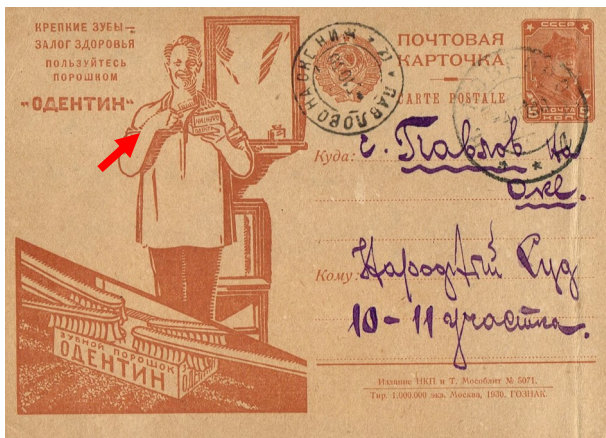 КРЕПКИЕ ЗУБЫ—
ЗАЛОГ ЗДОРОВЬЯ
ПОЛЬЗУЙТЕСЬ
ПОРОШКОМ
"ОДЕНТИН"
ОДЕНТИН
ЗУБНОЙ ПОРОШОК
ОДЕНТИН
ОДЕНТИН
ПАВЛОВО НА ОКЕ НИЖ
ПОЧТОВАЯ
КАРТОЧКА
CARTE POSTALE
СССР
ПОЧТА
5 КОП. 5
Куда: г. Павлов на
Оке.
Кому: Народный Суд
10-11 участка.
Издание НКП и Т. Мособлит № 5071.
Тир. 1.000.000 экз. Москва, 1930. ГОЗНАК.